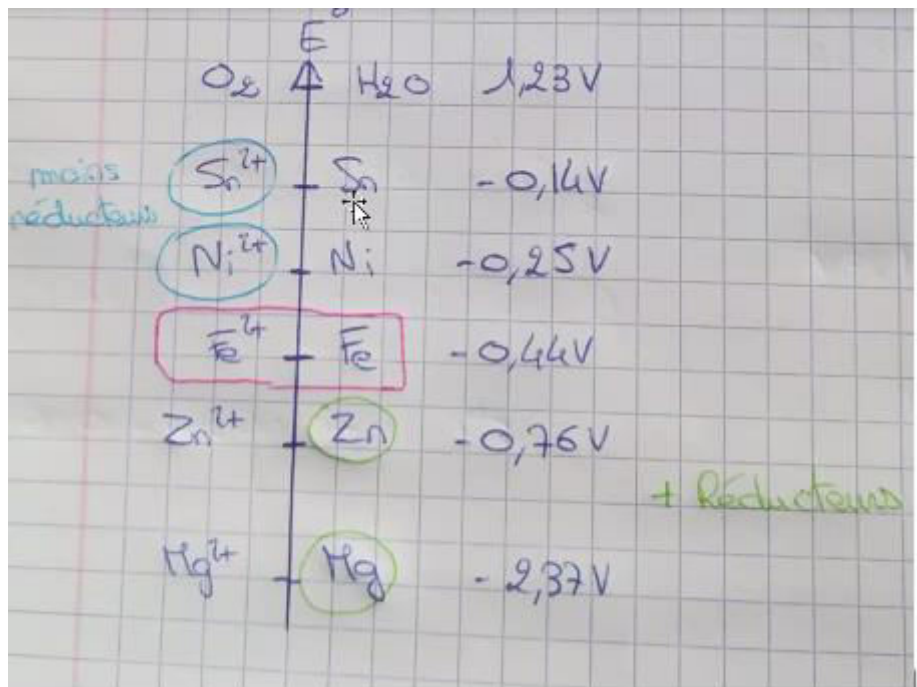 E°
O₂ H₂O 1,23V
moins
réducteurs
Sn²⁺ Sn -0,14V
Ni²⁺ Ni -0,25V
Fe²⁺ Fe -0,44V
Zn²⁺ Zn -0,76V
+ Réducteurs
Mg²⁺ Mg -2,37V